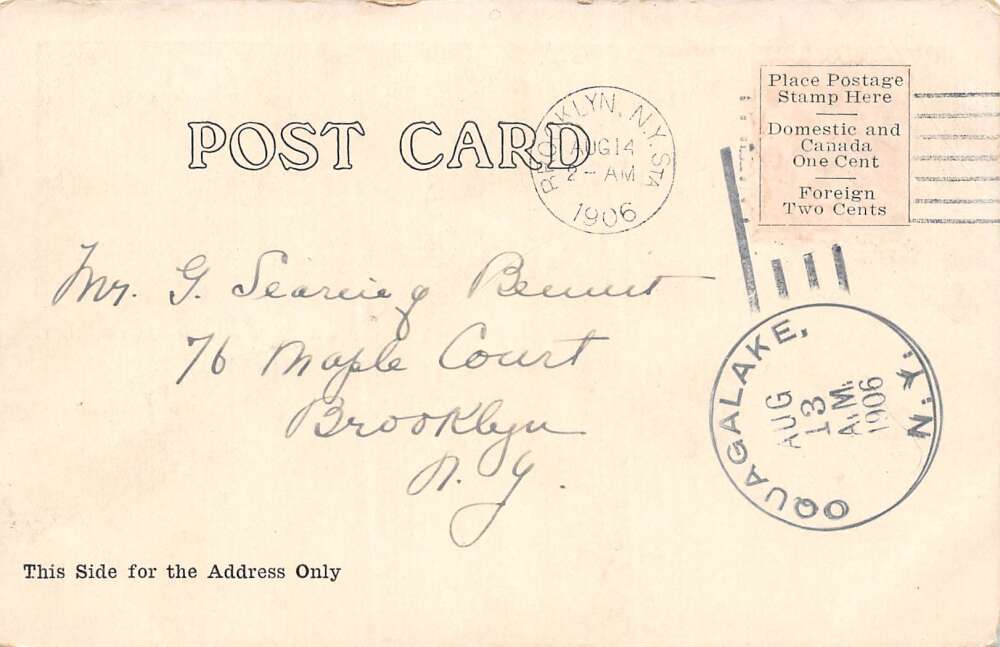 POST CARD
BROOKLYN, N.Y. STA
AUG 14
2 - AM
1906
Place Postage
Stamp Here
Domestic and
Canada
One Cent
Foreign
Two Cents
Mr. G. Searing Bennet
76 Maple Court
Brooklyn
N. Y.
OQUAGALAKE, N.Y.
AUG
13
A.M.
1906
This Side for the Address Only